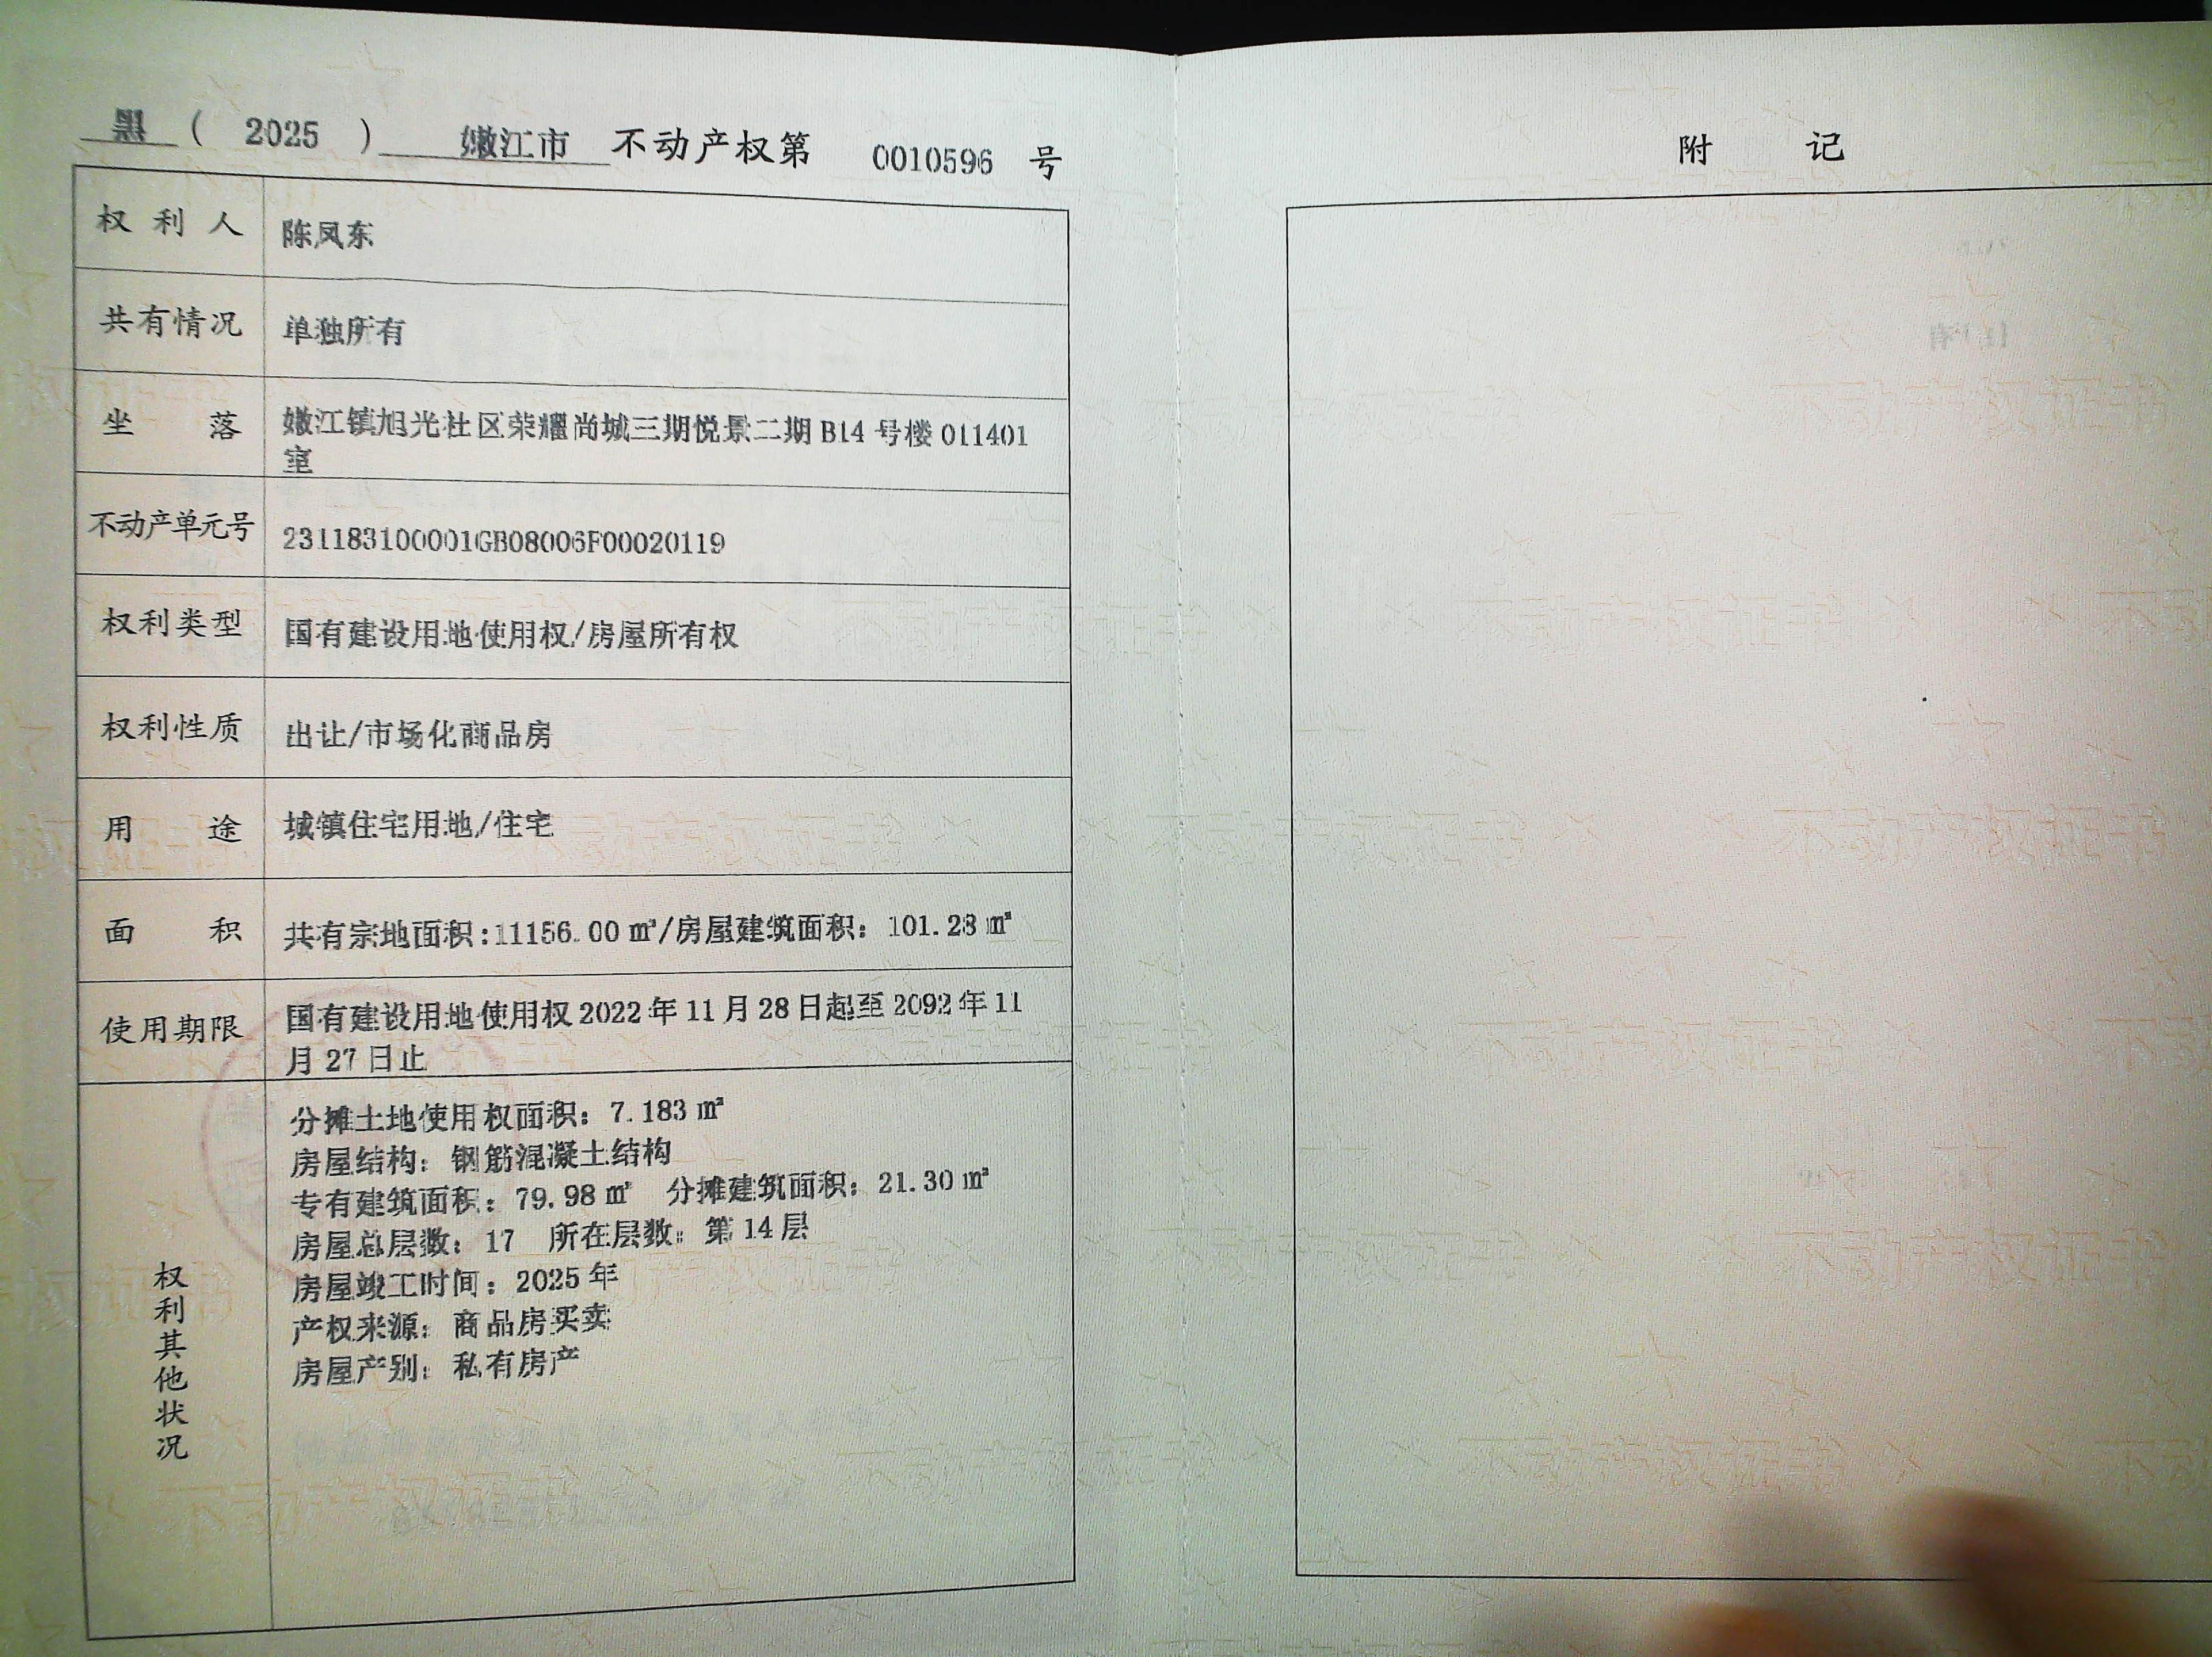 黑 ( 2025 ) 嫩江市 不动产权第 0010596 号
权利人 陈凤东
共有情况 单独所有
坐落 嫩江镇旭光社区荣耀尚城三期悦景二期 B14 号楼 011401
室
不动产单元号 231183100001GB08006F00020119
权利类型 国有建设用地使用权/房屋所有权
权利性质 出让/市场化商品房
用途 城镇住宅用地/住宅
面积 共有宗地面积:11156.00 ㎡/房屋建筑面积: 101.28 ㎡
使用期限 国有建设用地使用权 2022 年 11 月 28 日起至 2092 年 11
月 27 日止
权利其他状况
分摊土地使用权面积: 7.183 ㎡
房屋结构: 钢筋混凝土结构
专有建筑面积: 79.98 ㎡ 分摊建筑面积: 21.30 ㎡
房屋总层数: 17 所在层数: 第 14 层
房屋竣工时间: 2025 年
产权来源: 商品房买卖
房屋产别: 私有房产
附记